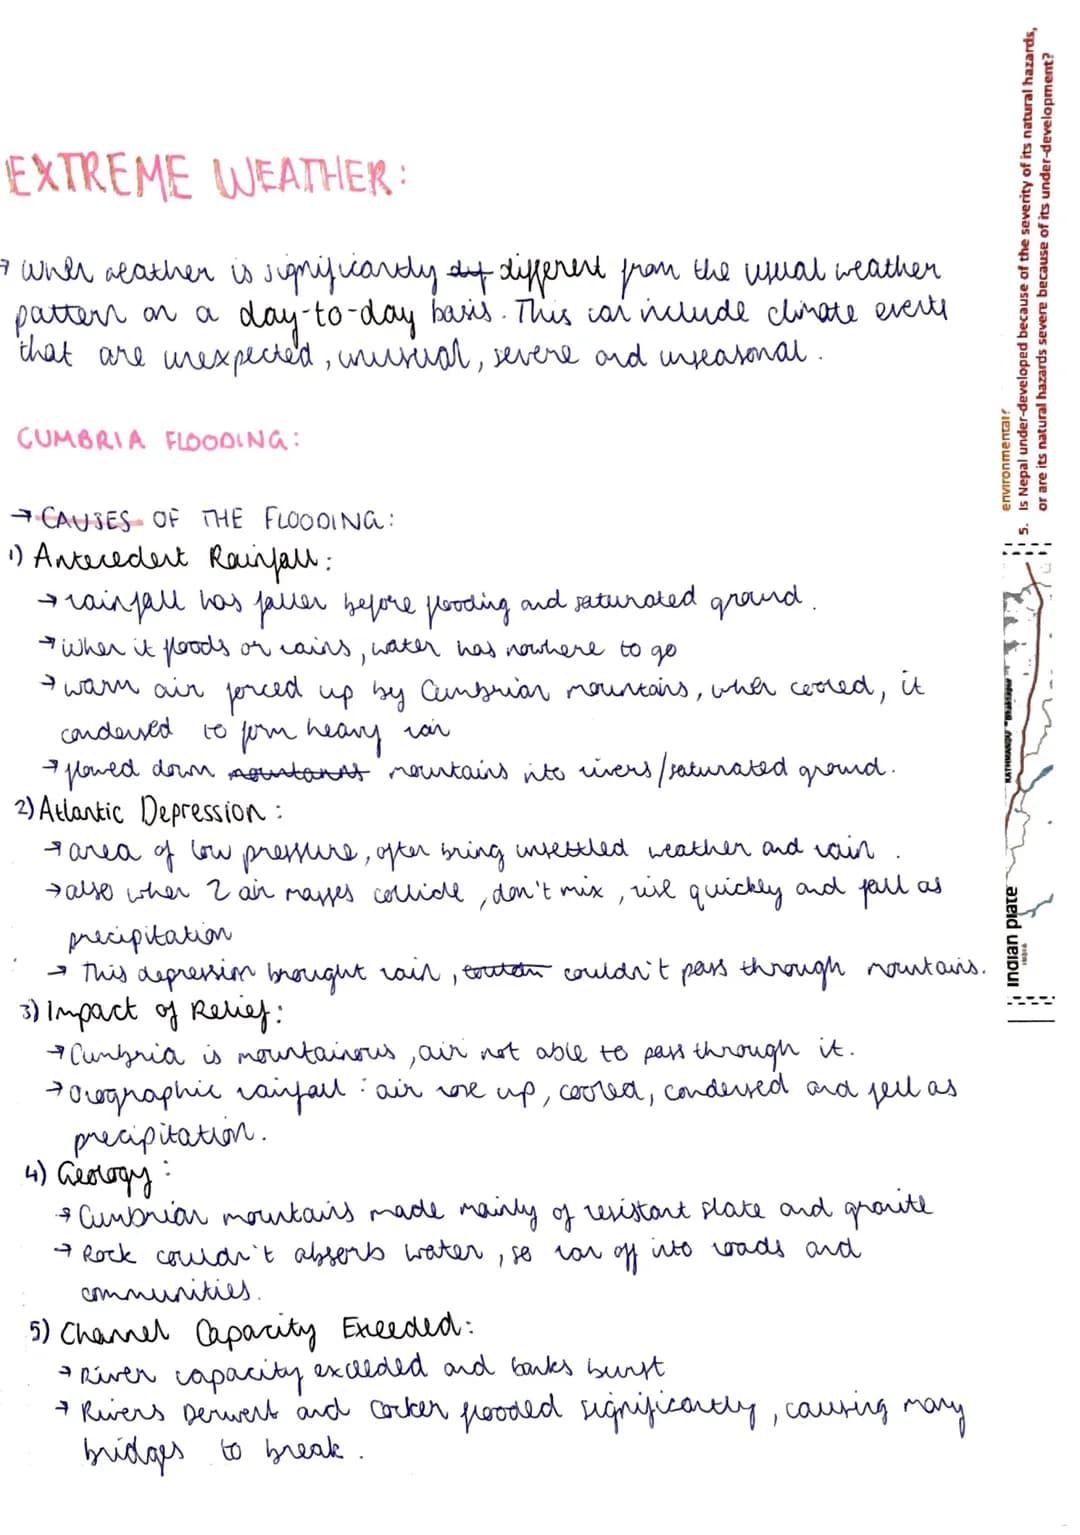 EXTREME WEATHER:
→ When weather is significantly dif different from the usual weather
pattern on a day-to-day basis. This can include climate events
that are unexpected, unusual, severe and unseasonal.
CUMBRIA FLOODING:
→ CAUSES OF THE FLOODING:
1) Antecedent Rainfall:
→ rainfall has fallen before flooding and saturated ground.
→ When it floods or rains, water has nowhere to go
→ warm air forced up by Cumbrian mountains, when cooled, it
condensed to form heavy rain
→ flowed down mountains mountains into rivers/saturated ground.
2) Atlantic Depression:
→ area of low pressure, often bring unsettled weather and rain.
→ also when 2 air masses collide, don't mix, rise quickly and fall as
precipitation
→ This depression brought rain, couldn't pass through mountains.
3) Impact of Relief:
→ Cumbria is mountainous, air not able to pass through it.
→ Orographic rainfall: air rose up, cooled, condensed and fell as
precipitation.
4) Geology:
→ Cumbrian mountains made mainly of resistant slate and granite
→ Rock couldn't absorb water, so ran off into roads and
communities.
5) Channel Capacity Exceeded:
→ River capacity exceeded and banks burst
→ Rivers Derwent and Cocker flooded significantly, causing many
bridges to break.
environmental?
5. Is Nepal under-developed because of the severity of its natural hazards,
or are its natural hazards severe because of its under-development?
KATHMANDU Bhaktapur
Indian plate